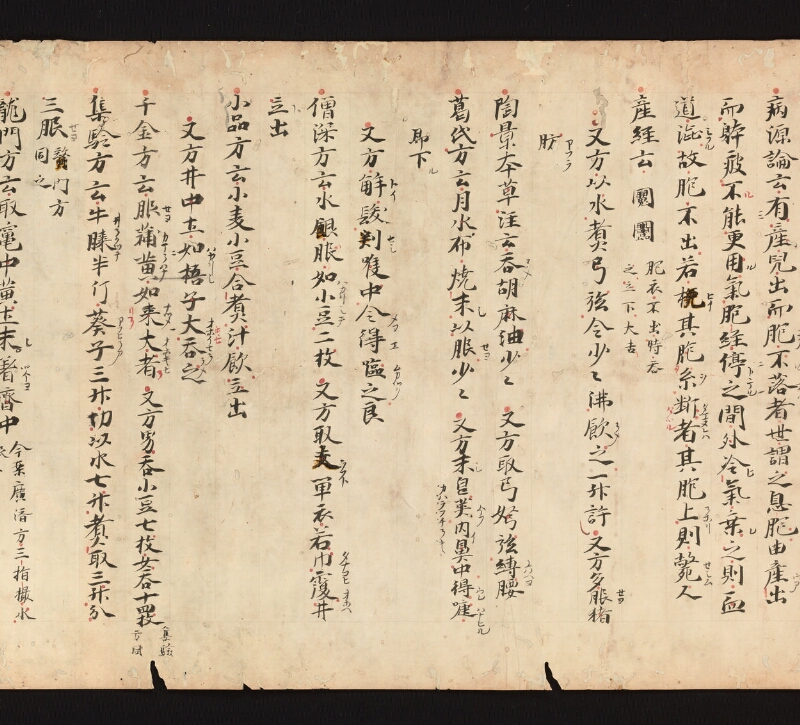 病源論云有産児出而胞不落者世謂之息胞由産出
而躰疲不能更用氣胞経停之間外冷氣乗之則血
道澁故胞不出若挽其胞系断者其胞上則斃人
産経云 胞衣不出時呑之立下大吉
又方以水煮弓弦令少々沸飲之一升許 又方多服猪
肪
陶景本草注云呑胡麻油少々 又方取弓弩弦縛腰
葛氏方云月水布焼末以服少々 又方末皀莢内鼻中得嚏
即下
又方解髪刺喉中令得嘔之良
僧深方云水銀服如小豆二枚 又方取夫單衣若巾覆井
立出
小品方云小麦小豆合煮汁飲立出
又方井中土如梧子大呑之
千金方云服蒲黄如棗大者 又方男呑小豆七枚女呑十四枚 集驗方同
集驗方云牛膝半斤葵子三升切以水七升煮取三升分
三服 龍門方同之
龍門方云取竈中黄土末著齊中 今案廣済方三指撮水